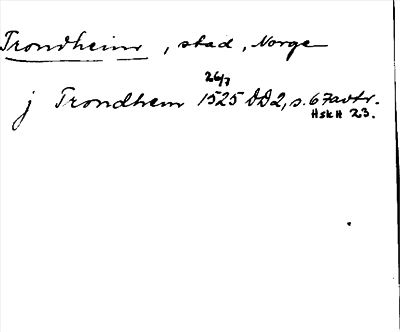 Trondheim, stad, Norge
26/7
j Trondhem 1525 DD2, s. 67 avtr.
HSH 23.